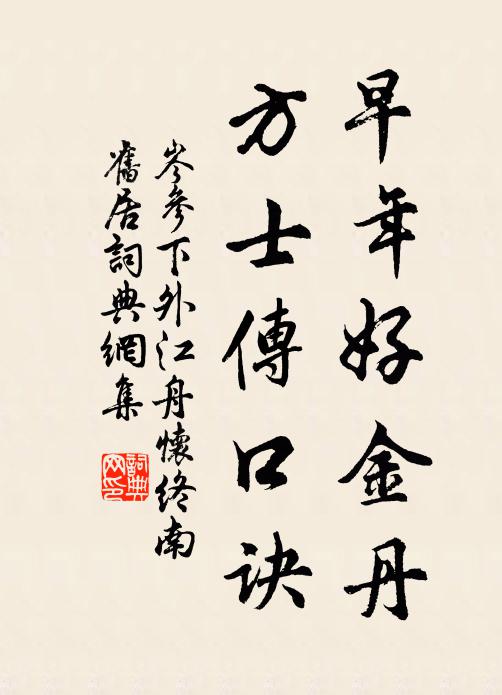 早年好金丹
方士傳口訣
岑參下外江舟懷終南
舊居詞典網集
詞典
网印